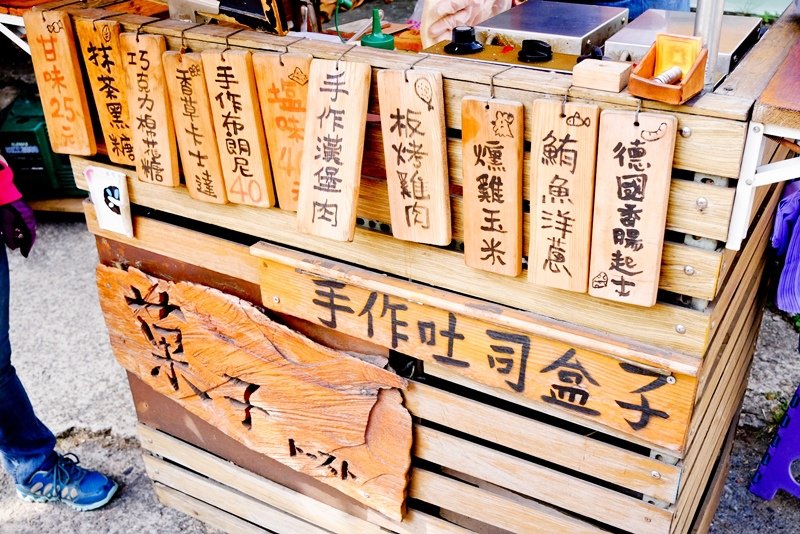 甘味25元
抹茶黑糖
巧克力棉花糖
香草卡士達
手作布朗尼
40
塩味4元
手作漢堡肉
板烤雞肉
燻雞玉米
鮪魚洋蔥
德國香腸起士
手作吐司盒子
菓子
トースト